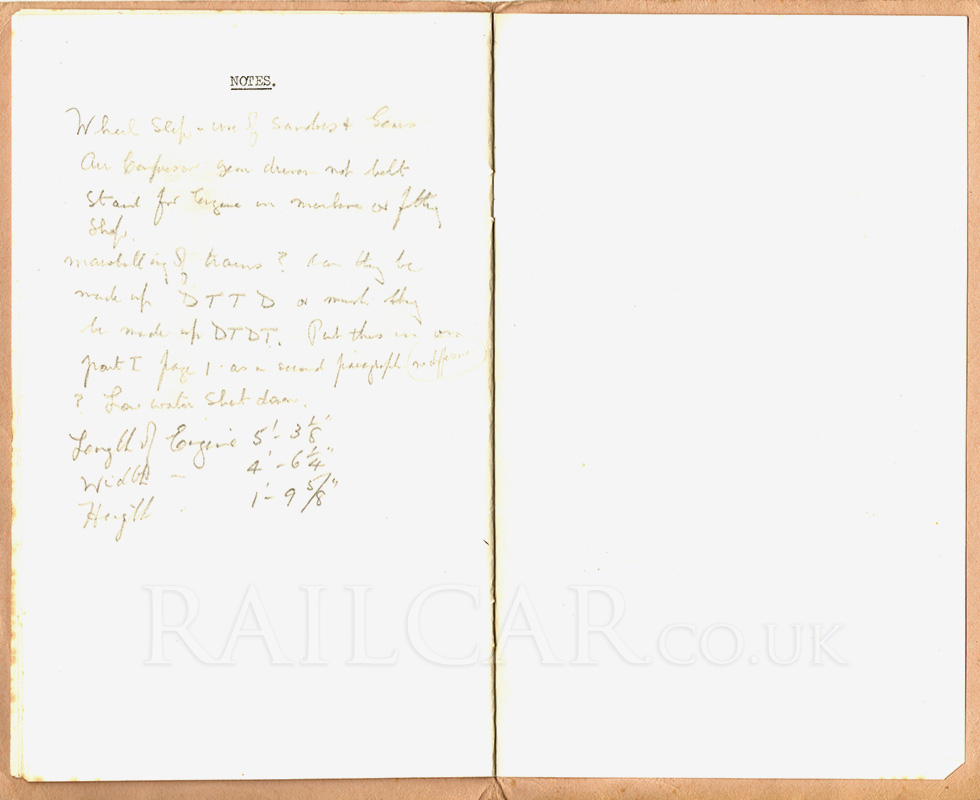 NOTES.
Wheel Slip - use of Sanders + Gears
Air Compressor gear driven not belt
Stand for Engine in machine or fitting
Shop.
marshalling of trains? Can they be
made up DTTD or must they
be made up DTDT. Put this in on
part I page 1 as a second paragraph (no difference)
? Low water Shut down.
Length of Engine 5' - 3 1/8"
Width - 4' - 6 1/4"
Height 1' - 9 5/8"
RAILCAR.CO.UK